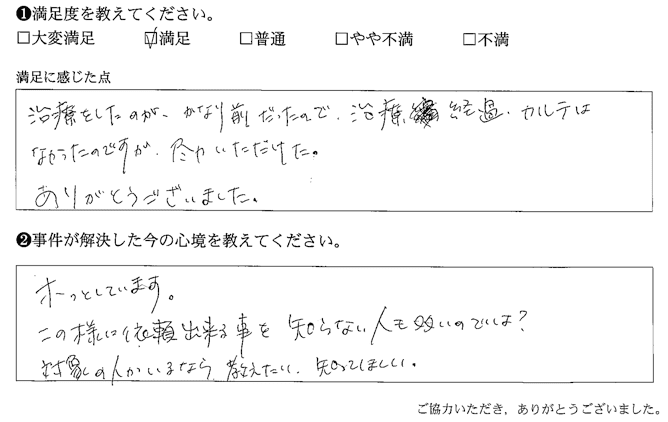 ❶満足度を教えてください。
□大変満足 ☑満足 □普通 □やや不満 □不満
満足に感じた点
治療をしたのが、かなり前だったので、治療経過、カルテは
なかったのですが、尽力いただけた。
ありがとうございました。
❷事件が解決した今の心境を教えてください。
ホーっとしています。
この様に依頼出来る事を知らない人も多いのでは?
対象の人がいるなら教えたい、知ってほしい。
ご協力いただき、ありがとうございました。